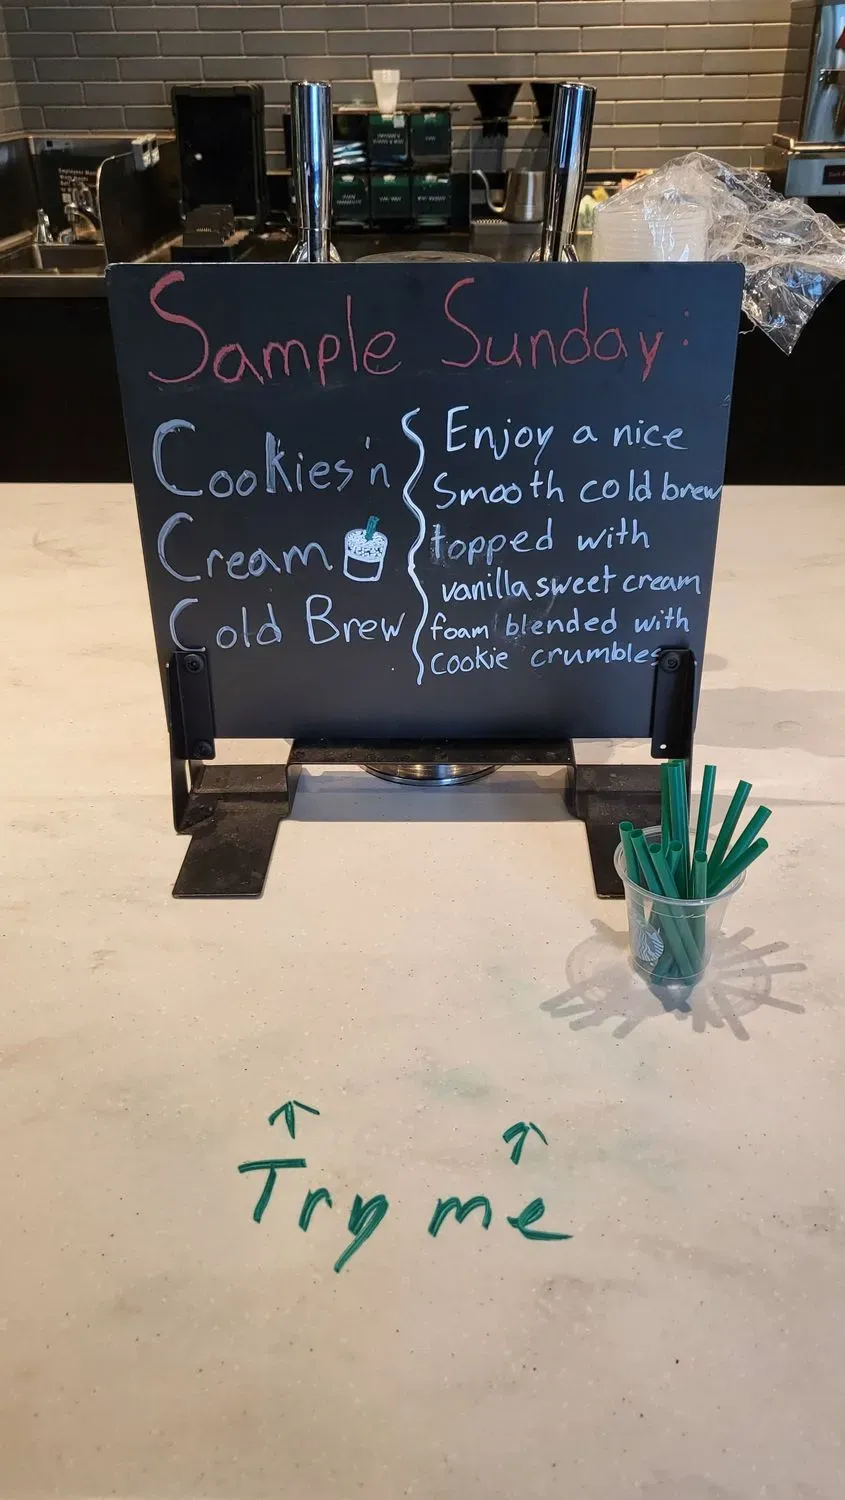 Sample Sunday:
Cookies 'n
Cream
Cold Brew
Enjoy a nice
Smooth cold brew
topped with
vanilla sweet cream
foam blended with
Cookie crumbles
Try me